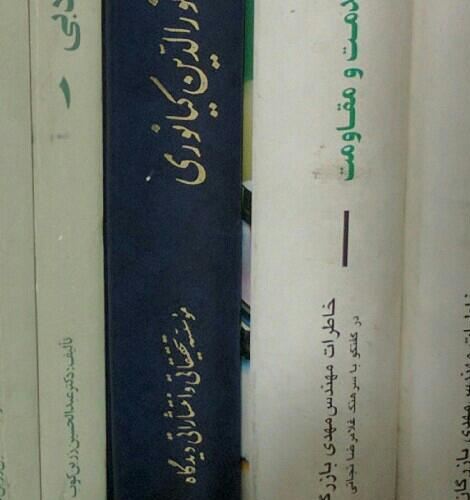 دبی
تألیف: دکتر عبدالحسین زرین‌کوب
نورالدین کیانوری
مؤسسه تحقیقاتی و انتشاراتی دیدگاه
دمت و مقاومت
خاطرات مهندس مهدی بازرگ
در گفتگو با سرهنگ غلامرضا نجاتی
مهندس مهدی بازرگان